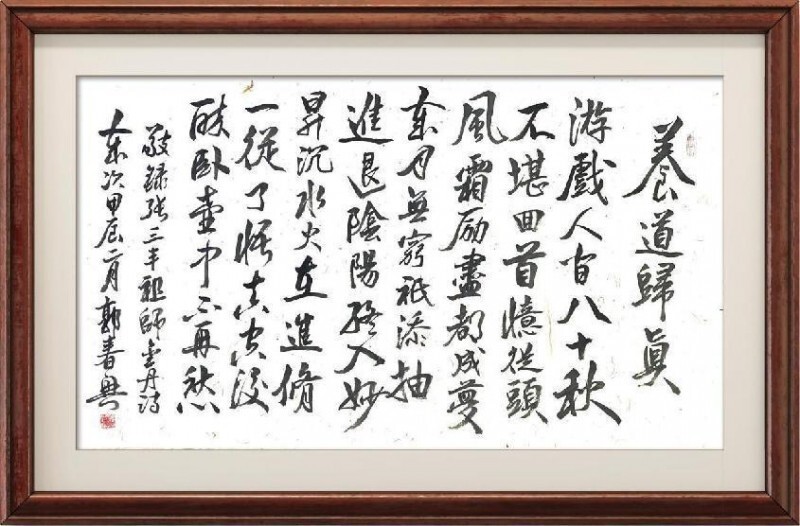 養道歸眞
游戲人間八十秋
不堪回首憶從頭
風霜勵盡都成夢
歲月無窮祇添抽
進退陰陽 入妙
昇沉水火 進脩
一從了悟真空後
醉臥壺中不再愁
敬錄張三丰祖師金丹詩
歲次甲辰二月郭春興